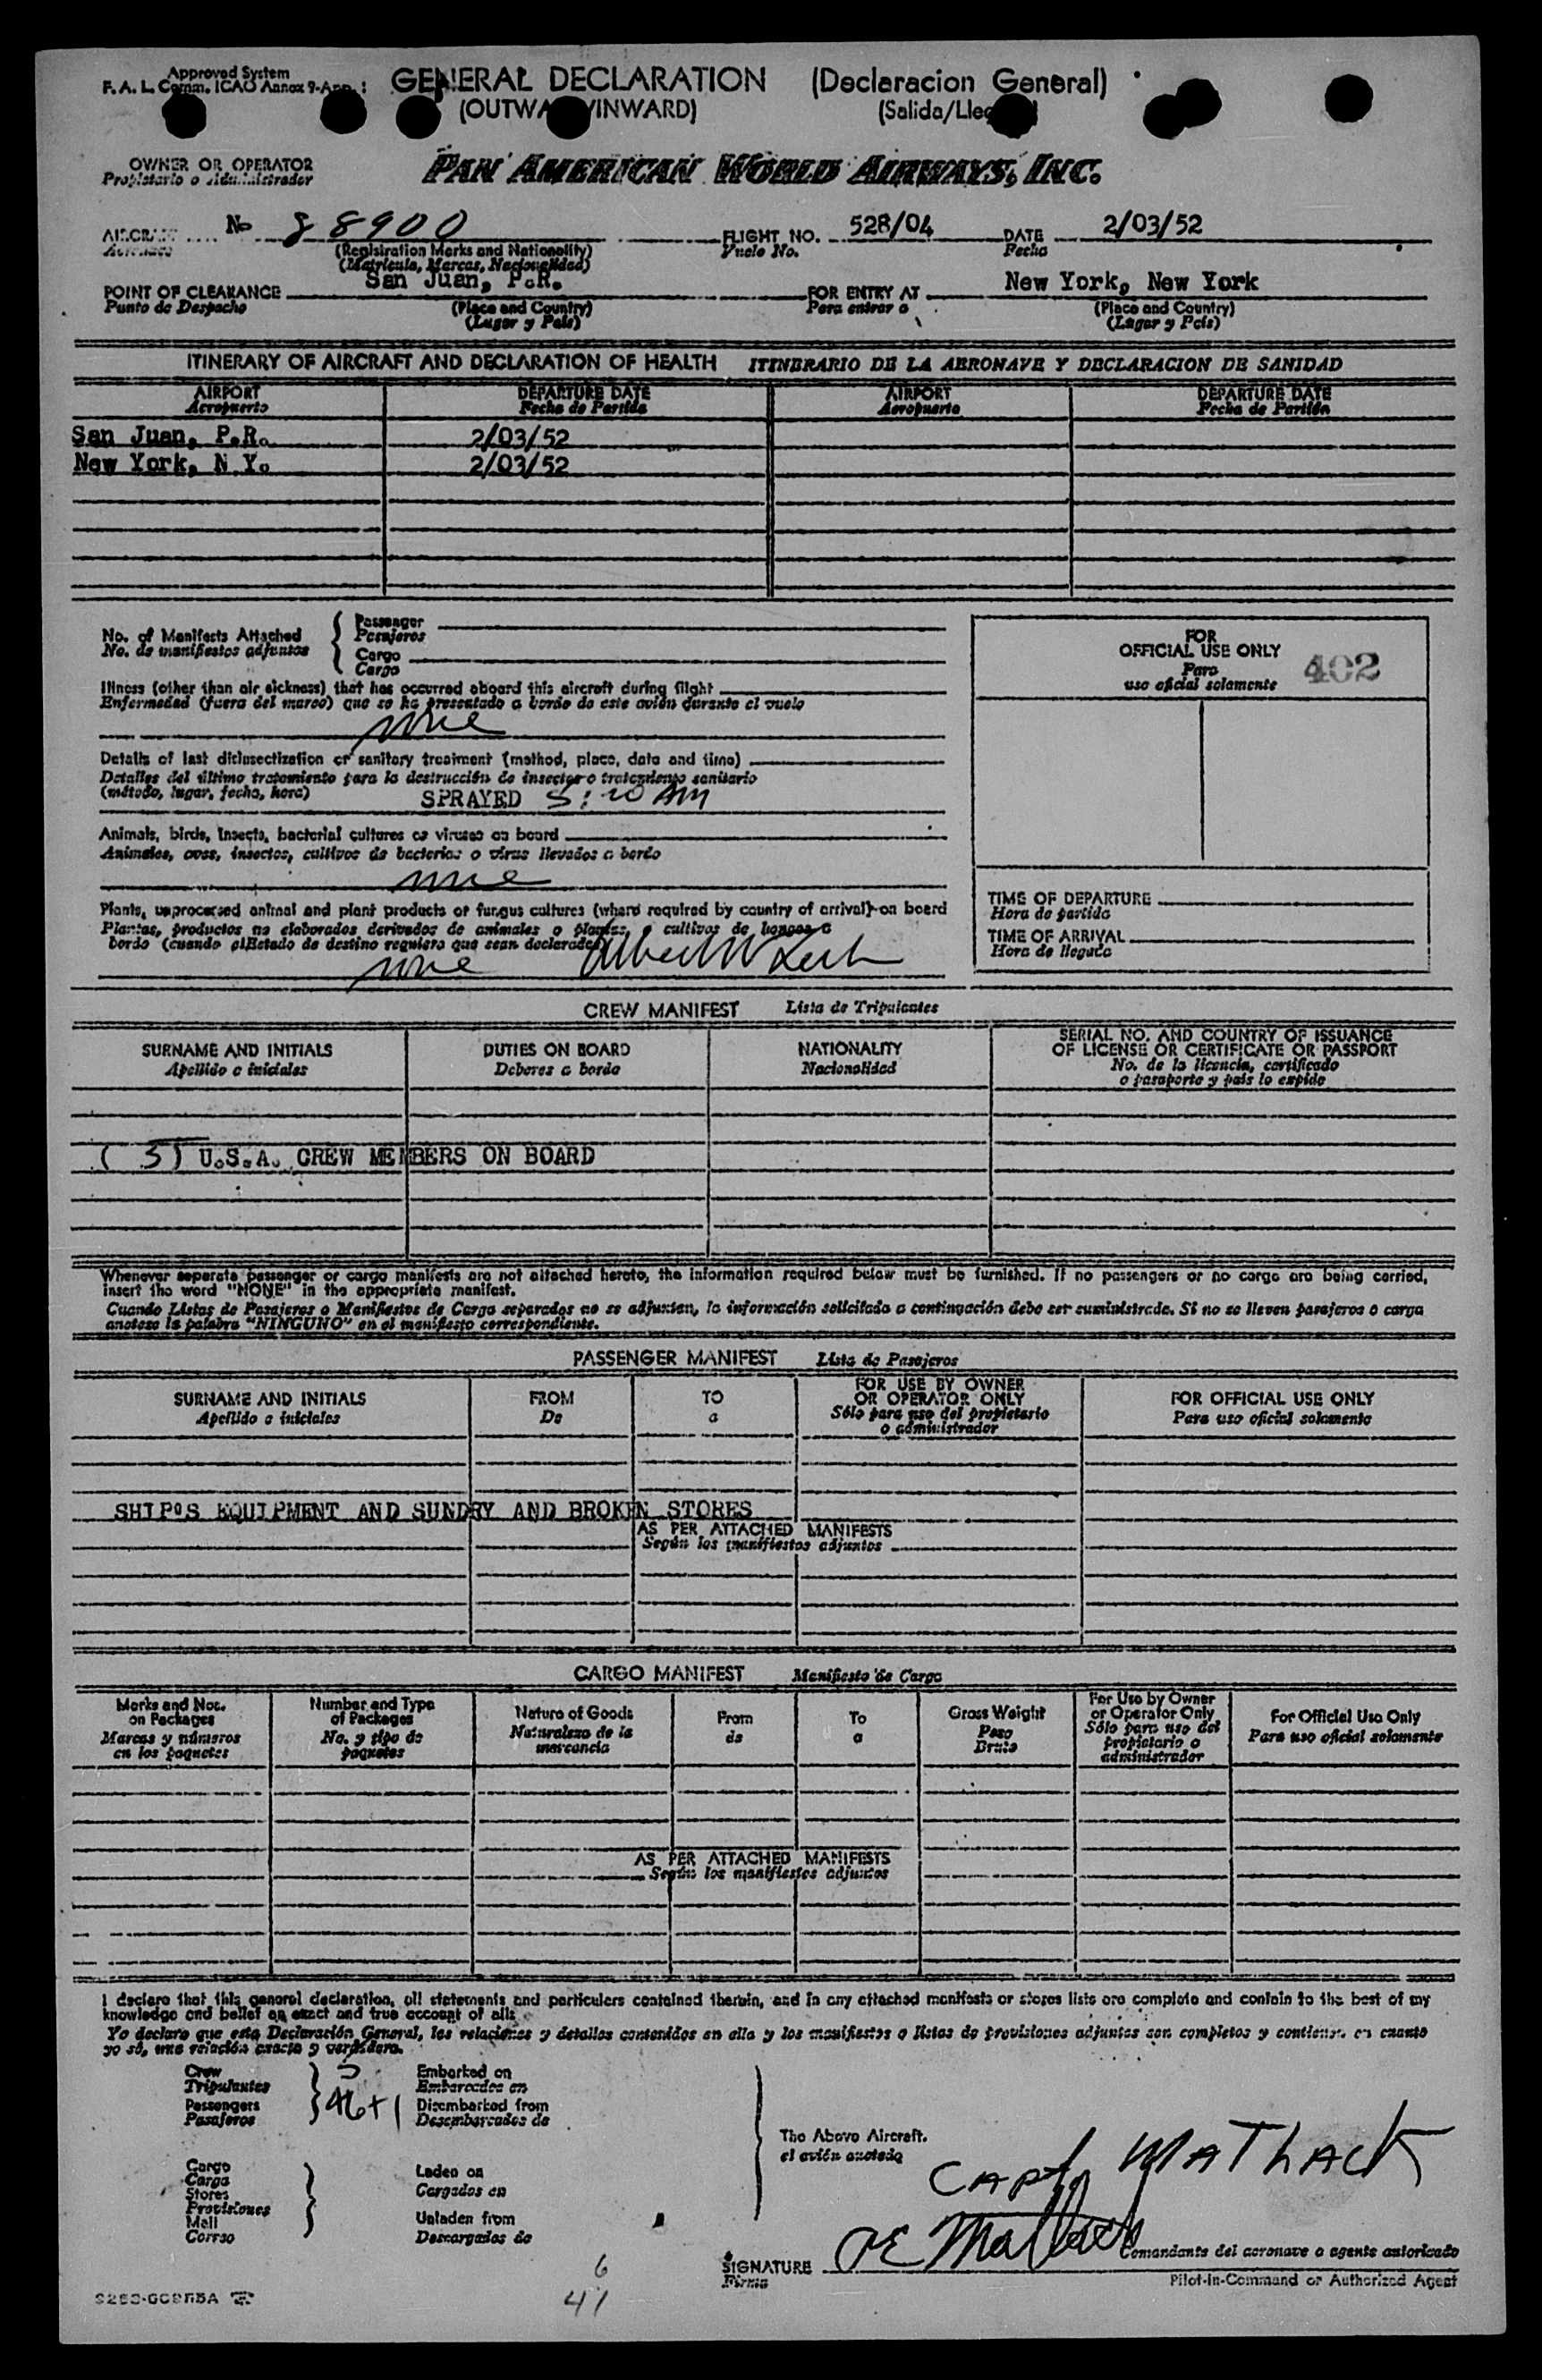 Approved System
F. A. L. Comm. ICAO Annex 9-App. 1
GENERAL DECLARATION (Declaracion General)
(OUTWARD/INWARD) (Salida/Llegada)
OWNER OR OPERATOR
Propietario o Administrador
PAN AMERICAN WORLD AIRWAYS, INC.
AIRCRAFT No 88900 FLIGHT NO. 528/04 DATE 2/03/52
Aeronave (Registration Marks and Nationality) Vuelo No. Fecha
(Matricula, Marcas, Nacionalidad)
San Juan, P.R. New York, New York
POINT OF CLEARANCE FOR ENTRY AT
Punto de Despacho (Place and Country) Para entrar a (Place and Country)
(Lugar y Pais) (Lugar y Pais)
ITINERARY OF AIRCRAFT AND DECLARATION OF HEALTH ITINERARIO DE LA AERONAVE Y DECLARACION DE SANIDAD
AIRPORT DEPARTURE DATE AIRPORT DEPARTURE DATE
Aeropuerto Fecha de Partida Aeropuerto Fecha de Partida
San Juan, P.R. 2/03/52
New York, N.Y. 2/03/52
No. of Manifests Attached
No. de manifiestos adjuntos
Passenger
Pasajeros
Cargo
Carga
FOR
OFFICIAL USE ONLY
Para
uso oficial solamente
402
Illness (other than air sickness) that has occurred aboard this aircraft during flight
Enfermedad (fuera del mareo) que se ha presentado a bordo de este avión durante el vuelo
none
Details of last disinsectization or sanitary treatment (method, place, date and time)
Detalles del último tratamiento para la destrucción de insectos o tratamiento sanitario
(método, lugar, fecha, hora) SPRAYED 5:20 AM
Animals, birds, insects, bacterial cultures or viruses on board
Animales, aves, insectos, cultivos de bacterias o virus llevados a bordo
none
Plants, unprocessed animal and plant products or fungus cultures (where required by country of arrival) on board
Plantas, productos no elaborados derivados de animales o plantas, o cultivos de hongos a
bordo (cuando el Estado de destino requiera que sean declarados)
none
TIME OF DEPARTURE
Hora de partida
TIME OF ARRIVAL
Hora de llegada
CREW MANIFEST Lista de Tripulantes
SURNAME AND INITIALS DUTIES ON BOARD NATIONALITY SERIAL NO. AND COUNTRY OF ISSUANCE
OF LICENSE OR CERTIFICATE OR PASSPORT
Apellido e iniciales Deberes a bordo Nacionalidad No. de la licencia, certificado
o pasaporte y país lo expide
(5) U.S.A. CREW MEMBERS ON BOARD
Whenever separate passenger or cargo manifests are not attached hereto, the information required below must be furnished. If no passengers or no cargo are being carried,
insert the word "NONE" in the appropriate manifest.
Cuando Listas de Pasajeros o Manifiestos de Carga separados no se adjuntan, la información solicitada a continuación debe ser suministrada. Si no se lleven pasajeros o carga
anotese la palabra "NINGUNO" en el manifiesto correspondiente.
PASSENGER MANIFEST Lista de Pasajeros
SURNAME AND INITIALS FROM TO FOR USE BY OWNER
OR OPERATOR ONLY FOR OFFICIAL USE ONLY
Apellido e iniciales De a Sólo para uso del propietario
o administrador Para uso oficial solamente
SHIP'S EQUIPMENT AND SUNDRY AND BROKEN STORES
AS PER ATTACHED MANIFESTS
Según los manifiestos adjuntos
CARGO MANIFEST Manifiesto de Carga
Marks and Nos.
on Packages
Marcas y números
en los paquetes
Number and Type
of Packages
No. y tipo de
paquetes
Nature of Goods
Naturaleza de la
mercancia
From
de
To
a
Gross Weight
Peso
Bruto
For Use by Owner
or Operator Only
Sólo para uso del
propietario o
administrador
For Official Use Only
Para uso oficial solamente
AS PER ATTACHED MANIFESTS
Según los manifiestos adjuntos
I declare that this general declaration, all statements and particulars contained therein, and in any attached manifests or stores lists are complete and contain to the best of my
knowledge and belief an exact and true account of all:
Yo declaro que esta Declaración General, las relaciones y detalles contenidos en ella y los manifiestos o listas de provisiones adjuntas son completos y contienen en cuanto
yo sé, una relación exacta y verdadera.
Crew
Tripulantes
5
Passengers
Pasajeros
46+1
Embarked on
Embarcados en
Disembarked from
Desembarcados de
The Above Aircraft.
el avión anotado
Cargo
Carga
Stores
Provisiones
Mail
Correo
Laden on
Cargados en
Unladen from
Descargados de
CAPT MATLACK
SIGNATURE
Firma
Comandante del aeronave o agente autorizado
Pilot-in-Command or Authorized Agent
6
41